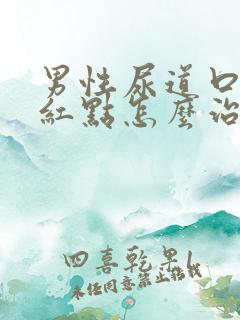 男性尿道口
紅點怎麼治
四喜乾果l
未经同意禁止搬战